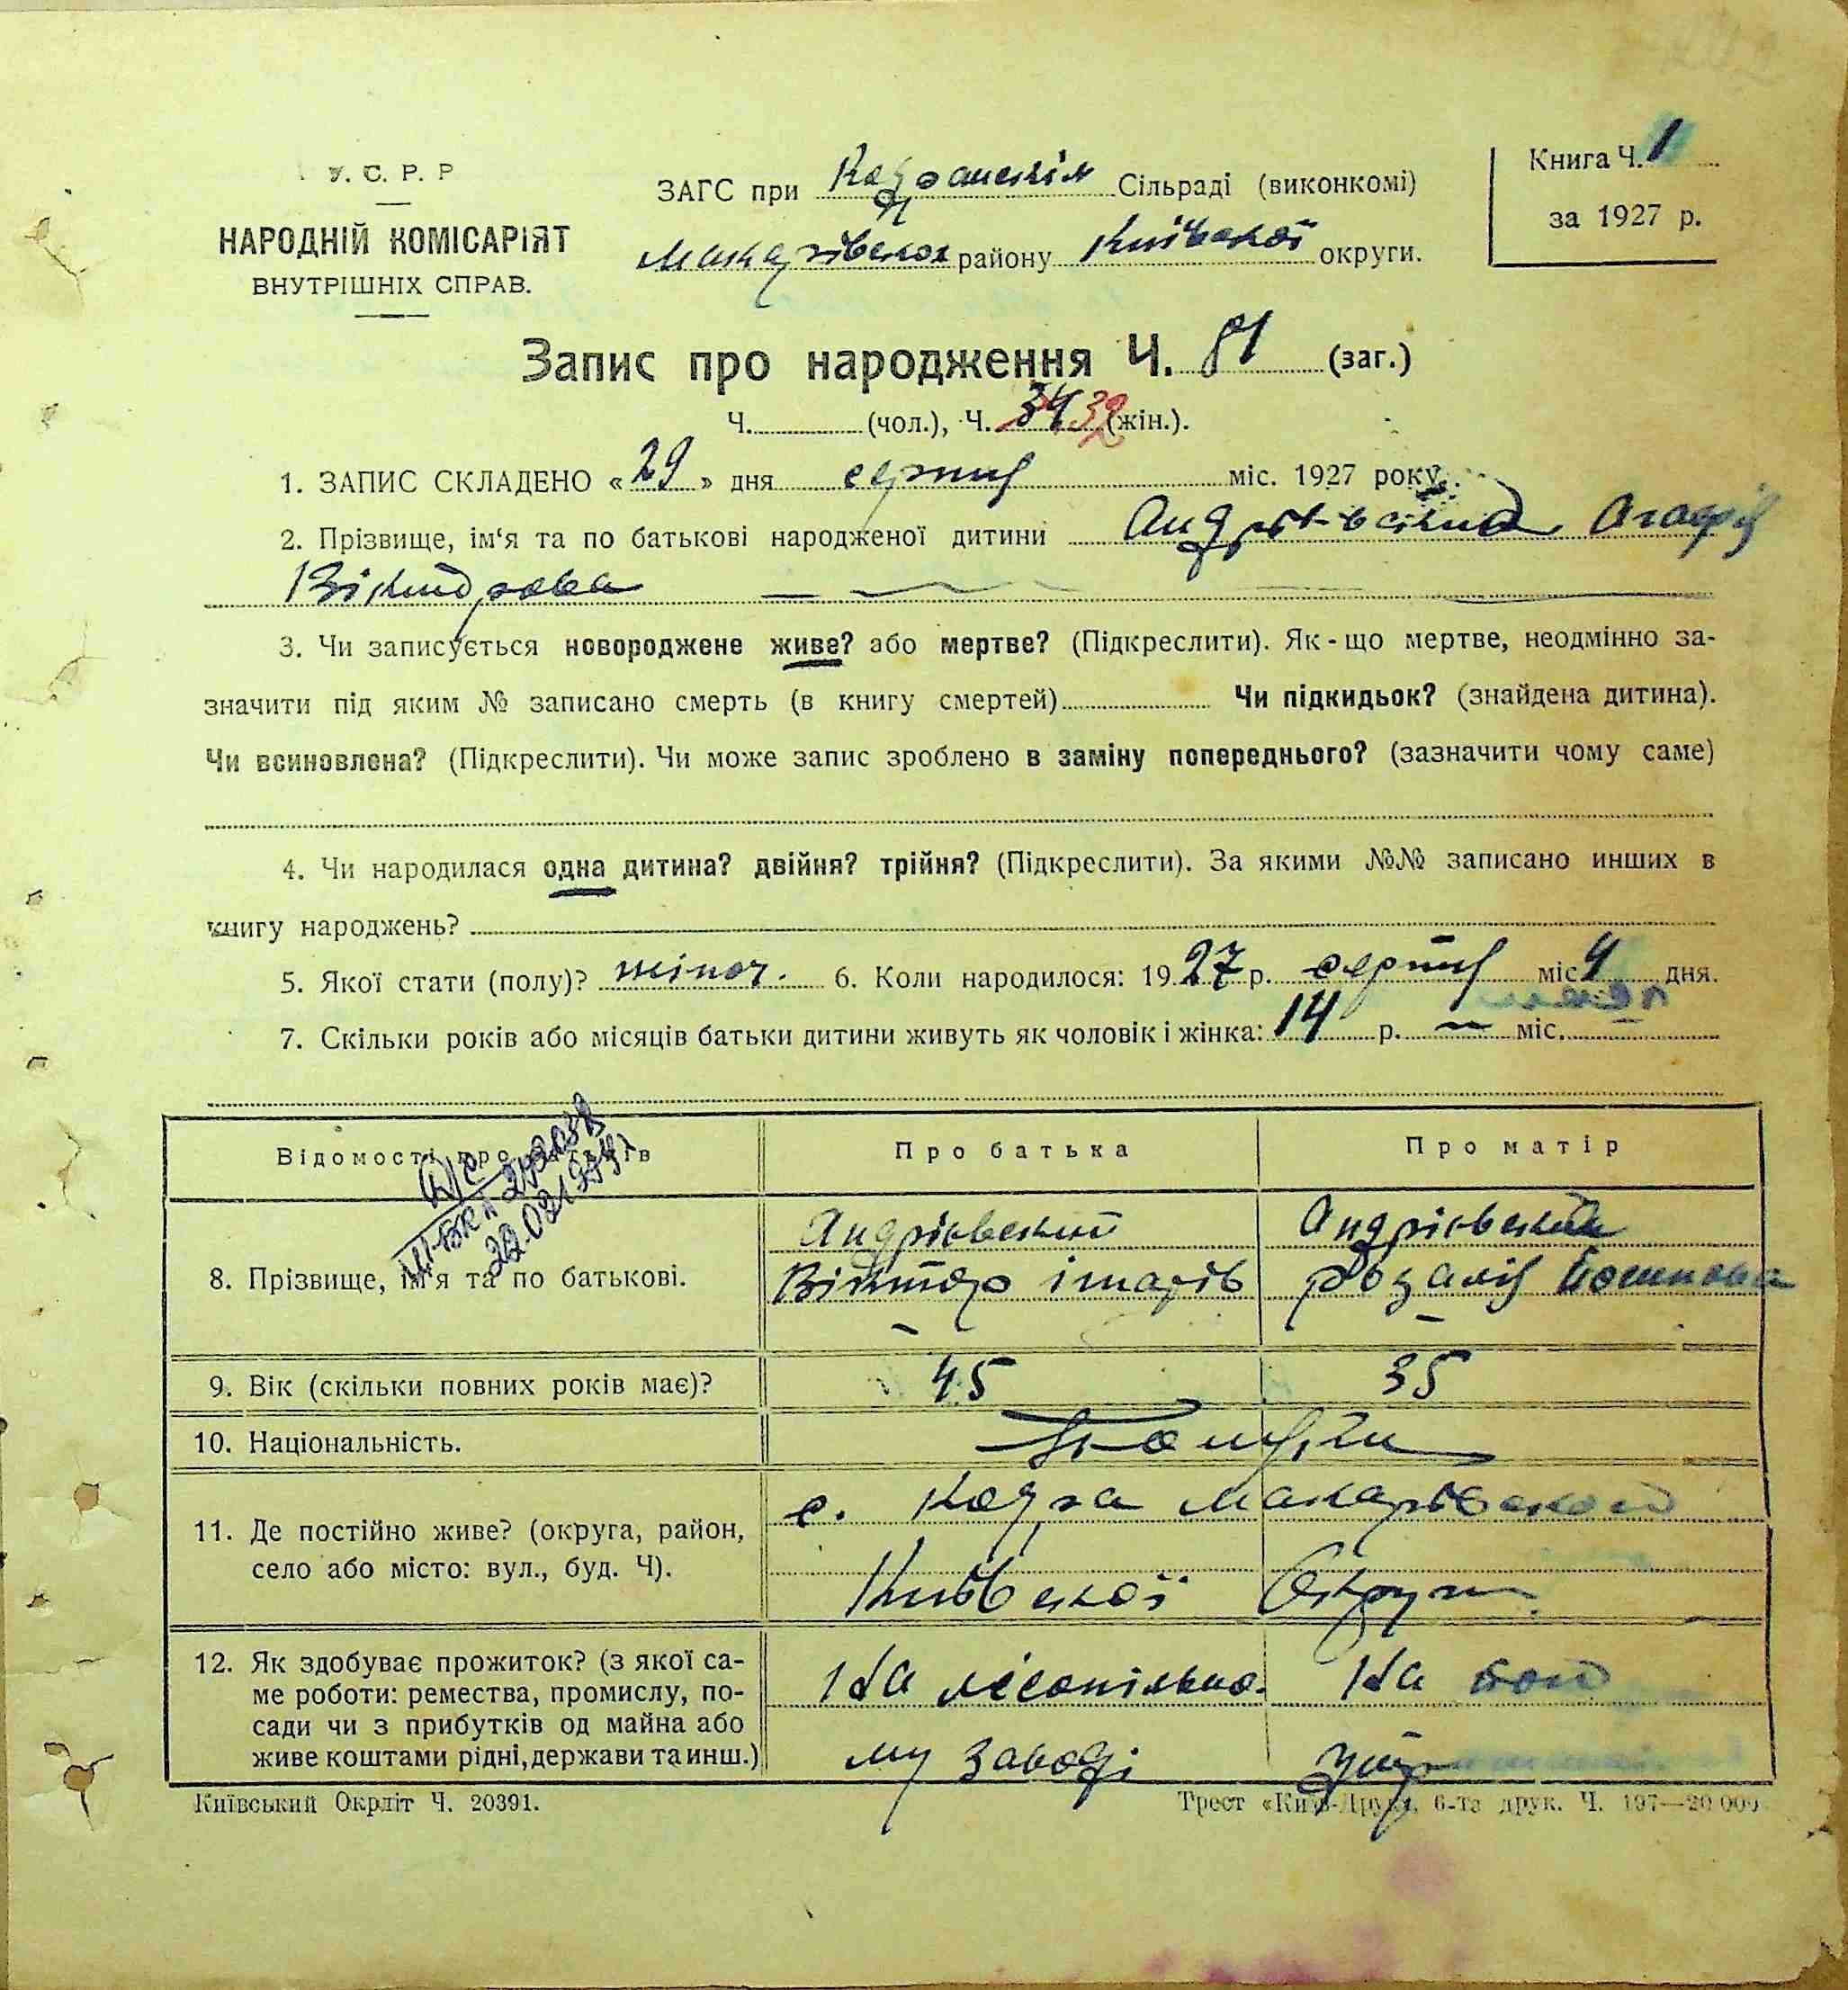 У. С. Р. Р
НАРОДНІЙ КОМІСАРІЯТ
ВНУТРІШНІХ СПРАВ.
ЗАГС при Кодранскім Сільраді (виконкомі)
Макарівськ району Київської округи.
Книга Ч. 1
за 1927 р.
Запис про народження Ч. 81 (заг.)
Ч. (чол.), Ч. 34 32 (жін.).
1. ЗАПИС СКЛАДЕНО «29» дня серпня міс. 1927 року.
2. Прізвище, ім‘я та по батькові народженої дитини Андрієвська Агафія
Вікторова
3. Чи записується новороджене живе? або мертве? (Підкреслити). Як-що мертве, неодмінно за-
значити під яким № записано смерть (в книгу смертей) Чи підкидьок? (знайдена дитина).
Чи всиновлена? (Підкреслити). Чи може запис зроблено в заміну попереднього? (зазначити чому саме)
4. Чи народилася одна дитина? двійня? трійня? (Підкреслити). За якими №№ записано инших в
книгу народжень?
5. Якої стати (полу)? жіноч. 6. Коли народилося: 1927 р. серпня міс 4 дня.
7. Скільки років або місяців батьки дитини живуть як чоловік і жінка: 14 р. — міс.
Відомості про батьків
Про батька
Про матір
8. Прізвище, ім‘я та по батькові.
Андрієвський
Віктор
Андрієвська
Розалія
9. Вік (скільки повних років має)?
45
35
10. Національність.
11. Де постійно живе? (округа, район,
село або місто: вул., буд. Ч).
с. Кодра Макарівского
Київської Округи
12. Як здобуває прожиток? (з якої са-
ме роботи: ремества, промислу, по-
сади чи з прибутків од майна або
живе коштами рідні, держави та инш.)
На лісопільно-
му заводі
На
Київський Окрліт Ч. 20391.
Трест «Київ-Друк», 6-та друк. Ч. 197—20.000